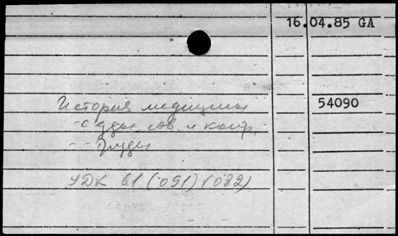 16.04.85 GA
История медицины 54090
- Съезды, сов. и конф.
- - Труды
УДК 61(091)(082)